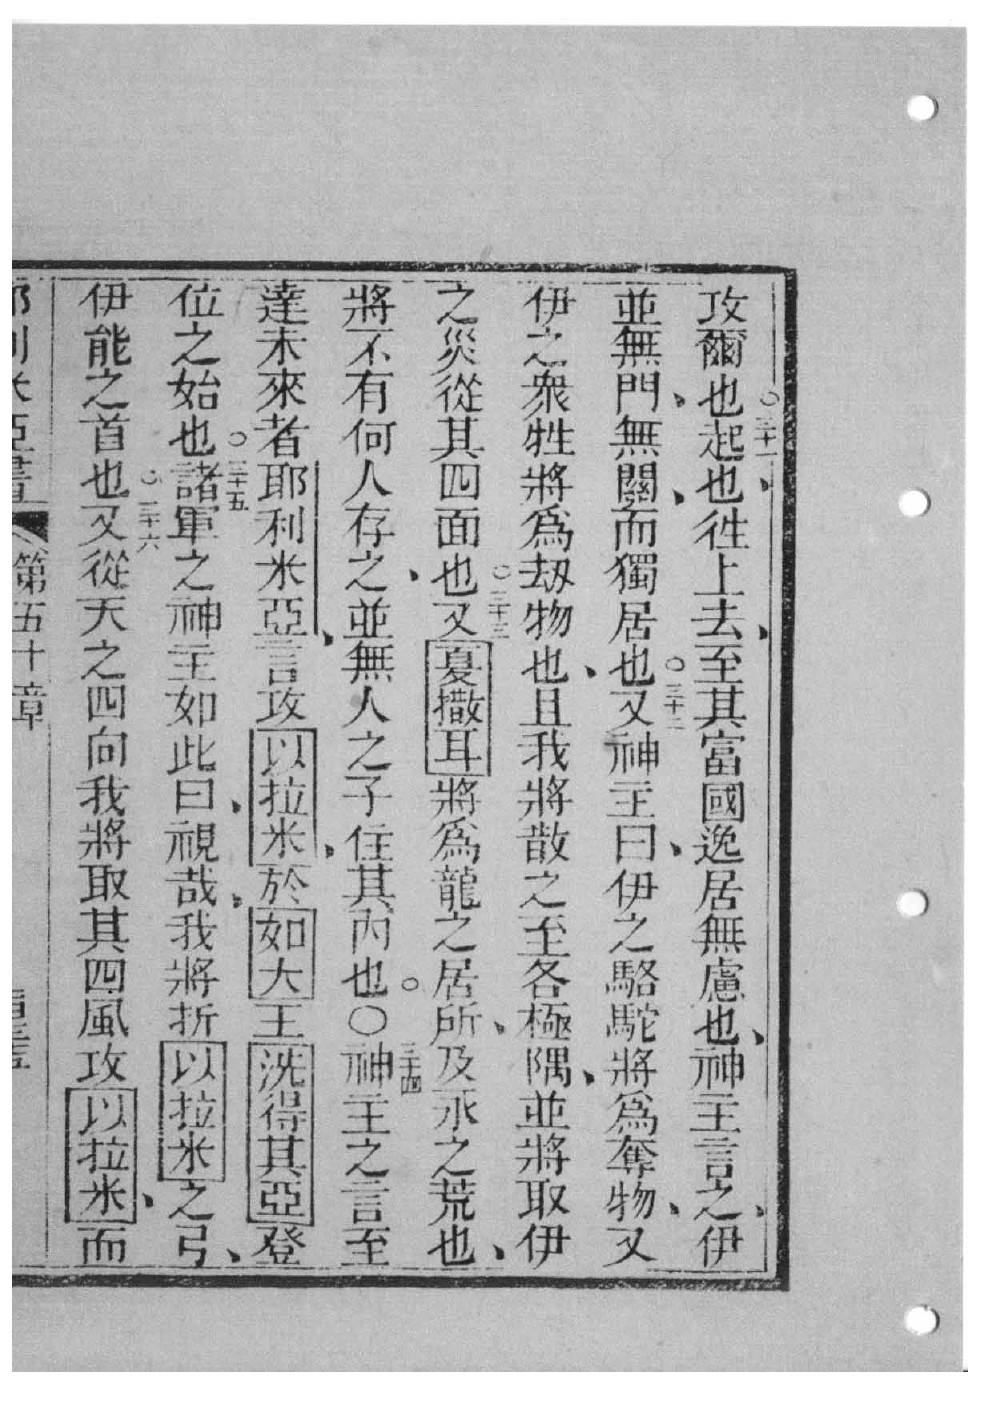 攻爾也○三十一起也、徃上去、至其富國逸居無慮也、神主言之、伊
並無門、無關、而獨居也○三十二又神主曰、伊之駱駝將為奪物、又
伊之衆牲將為刼物也、且我將散之至各極隅、並將取伊
之災從其四面也○三十三又夏撒耳將為龍之居所、及永之荒也、
將不有何人存之、並無人之子住其內也○○三十四神主之言至
達未來者耶利米亞、言攻以拉米、於如大王洗得其亞登
位之始也○三十五諸軍之神主如此曰、視哉、我將折以拉米之弓、
伊能之首也○三十六又從天之四向我將取其四風攻以拉米、而
耶利米亞書 第五十章